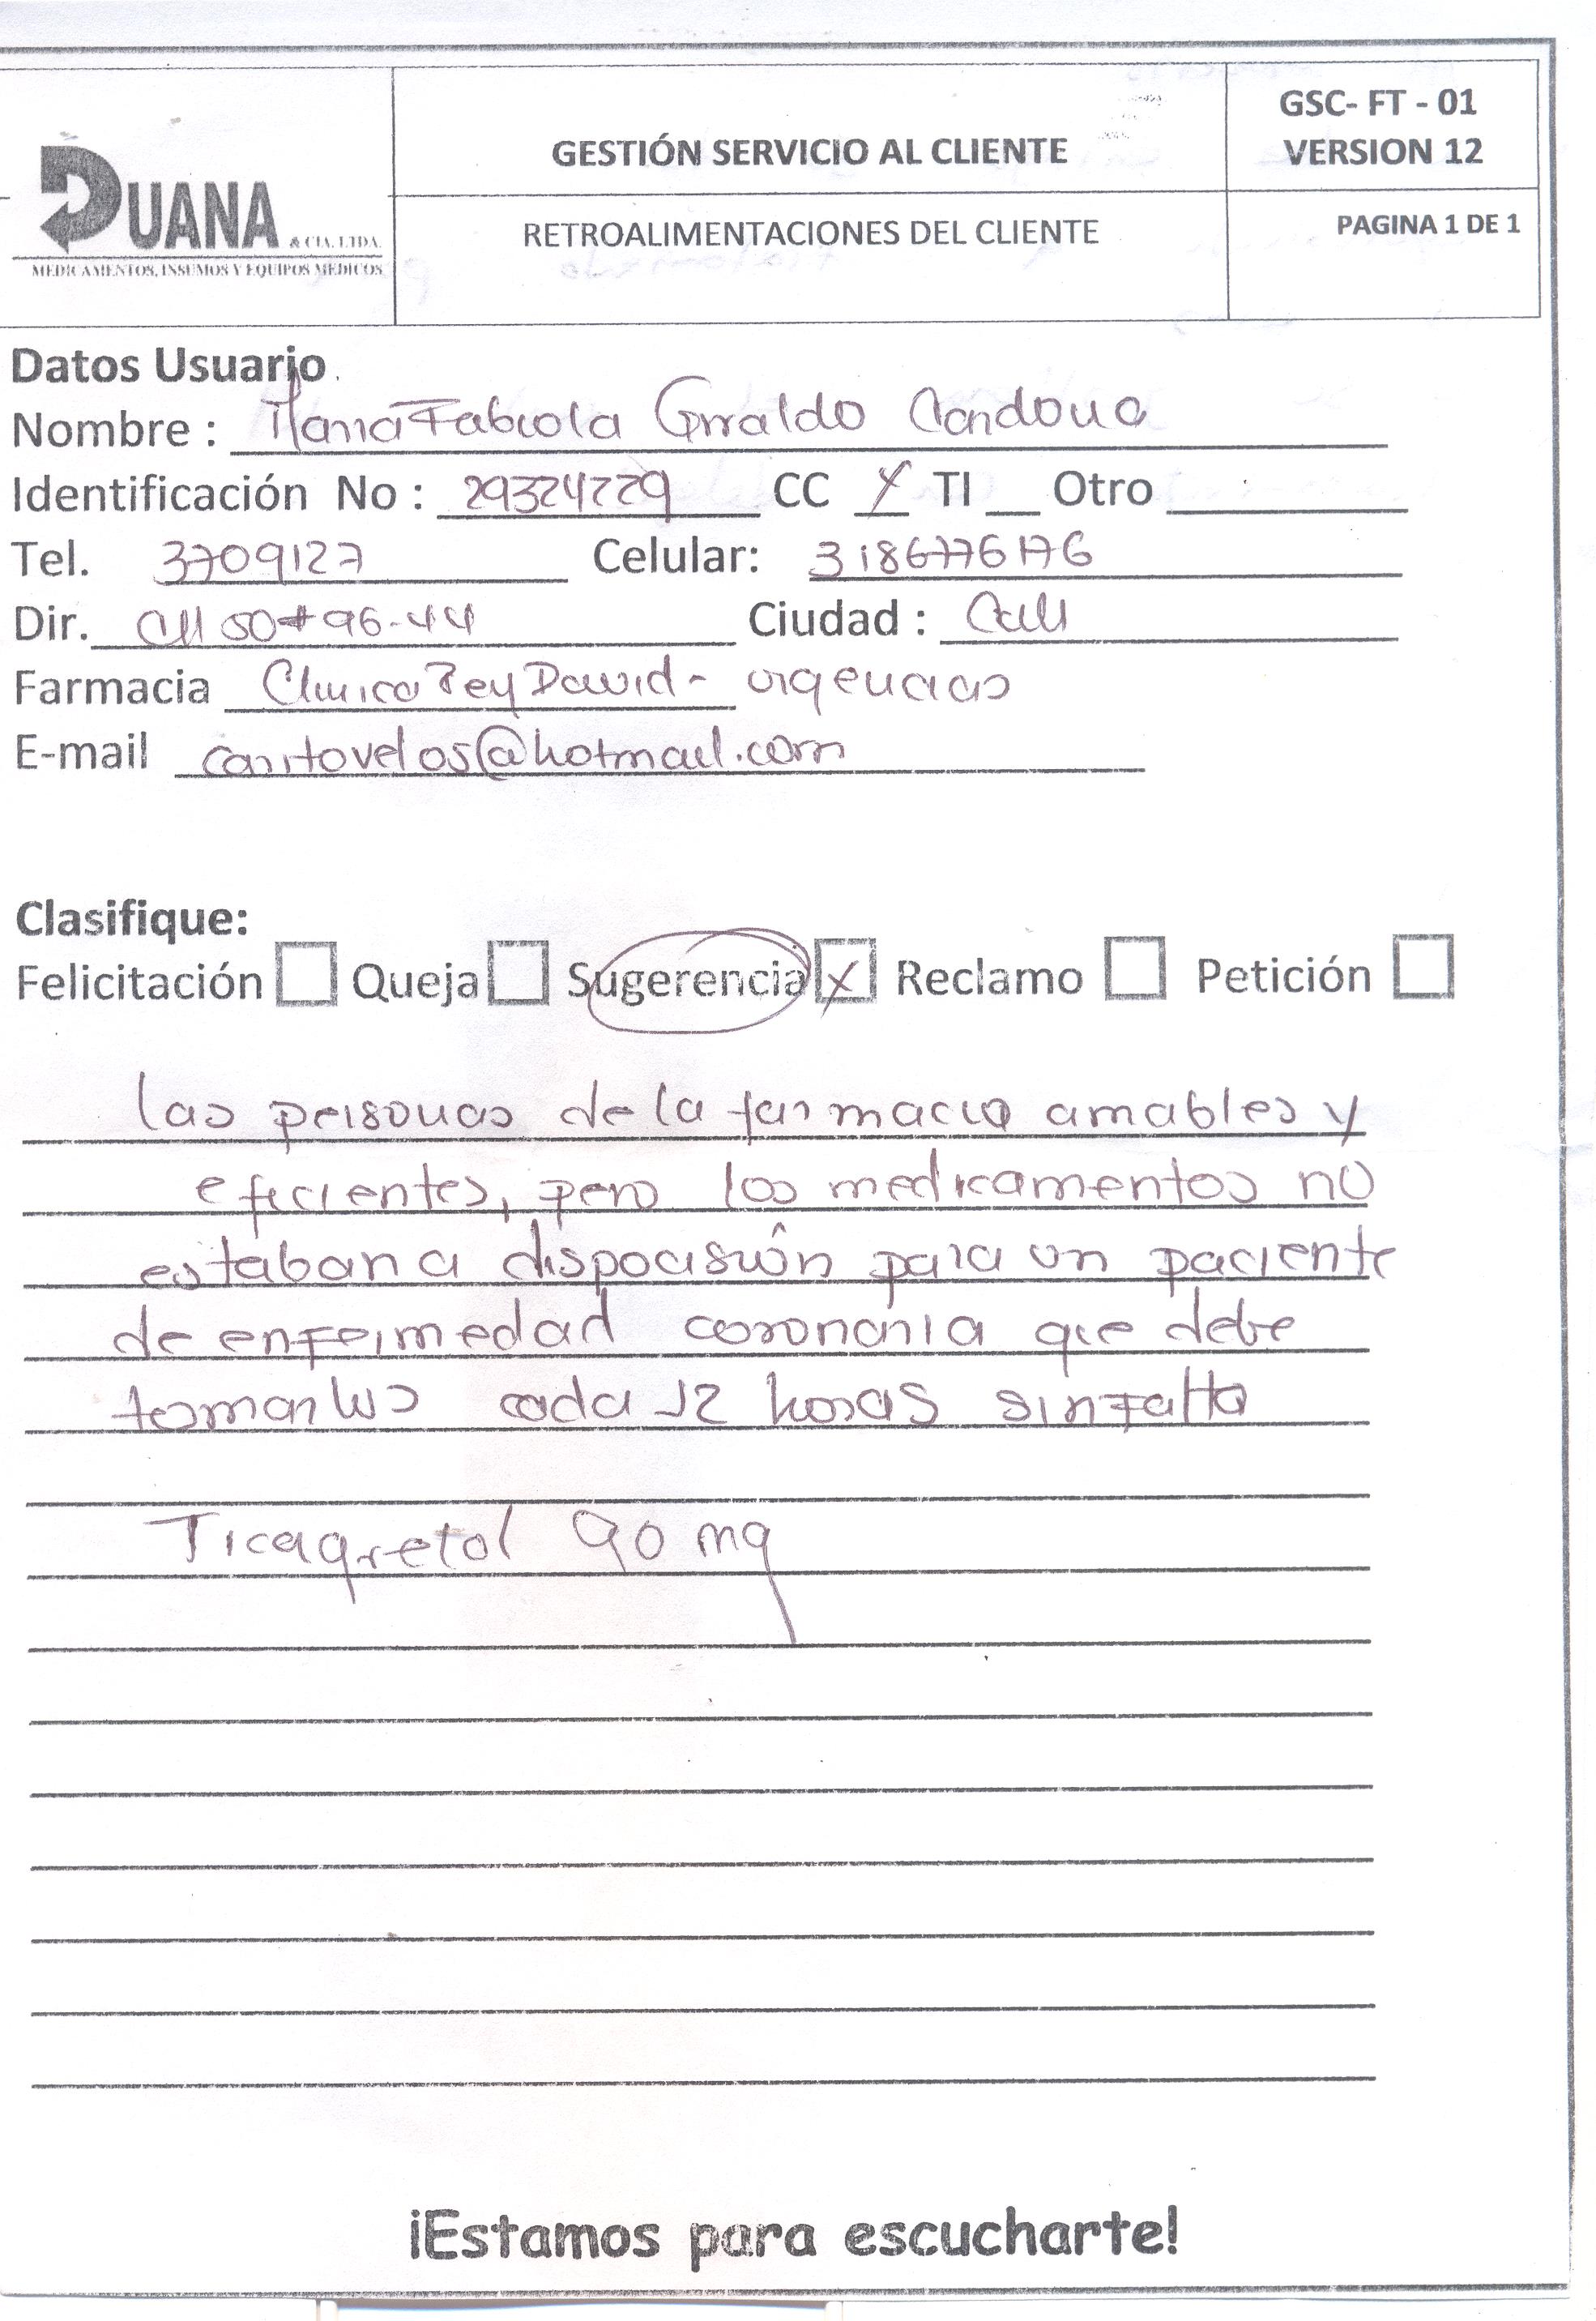 DUANA & CIA. LTDA.
MEDICAMENTOS, INSUMOS Y EQUIPOS MEDICOS
GESTIÓN SERVICIO AL CLIENTE
RETROALIMENTACIONES DEL CLIENTE
GSC- FT - 01
VERSION 12
PAGINA 1 DE 1
Datos Usuario
Nombre : María Fabiola Giraldo Cardona
Identificación No : 29324229 CC X TI __ Otro
Tel. 3709127 Celular: 3186776176
Dir. Cll 50 # 96-44 Ciudad : Cali
Farmacia Clinica Rey David - urgencias
E-mail caritovelos@hotmail.com
Clasifique:
Felicitación Queja Sugerencia X Reclamo Petición
las personas de la farmacia amables y
eficientes, pero los medicamentos no
estaban a dispocisión para un paciente
de enfermedad coronaria que debe
tomarlos cada 12 horas sin falta
Ticagretol 90 mg
¡Estamos para escucharte!